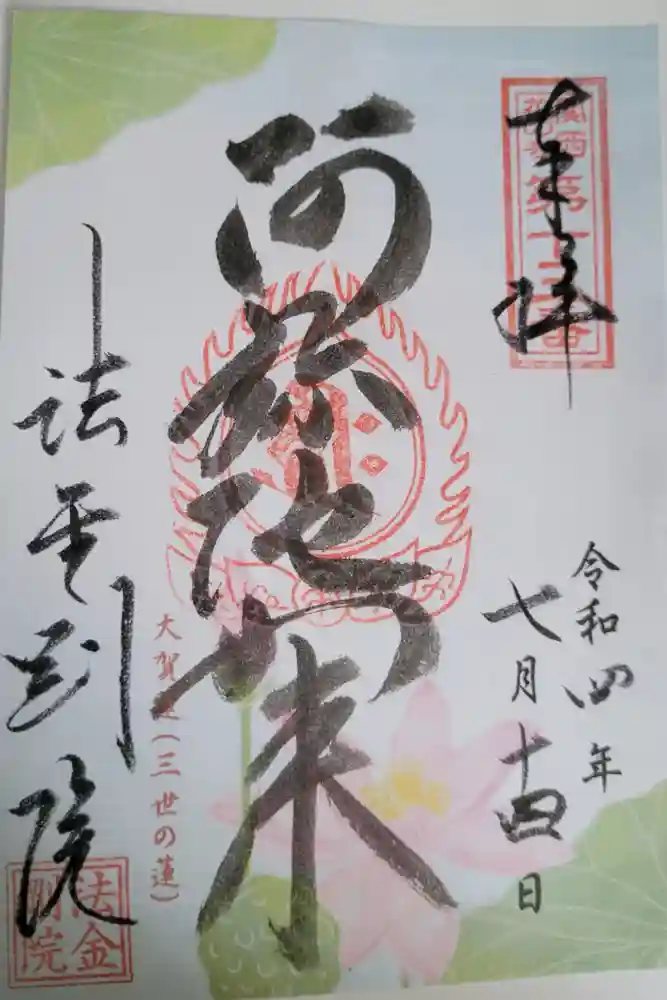 奉拝
関西花の寺
第十三番
令和四年
七月十四日
阿弥陀如来
大賀蓮(三世の蓮)
法金剛院
法金剛院